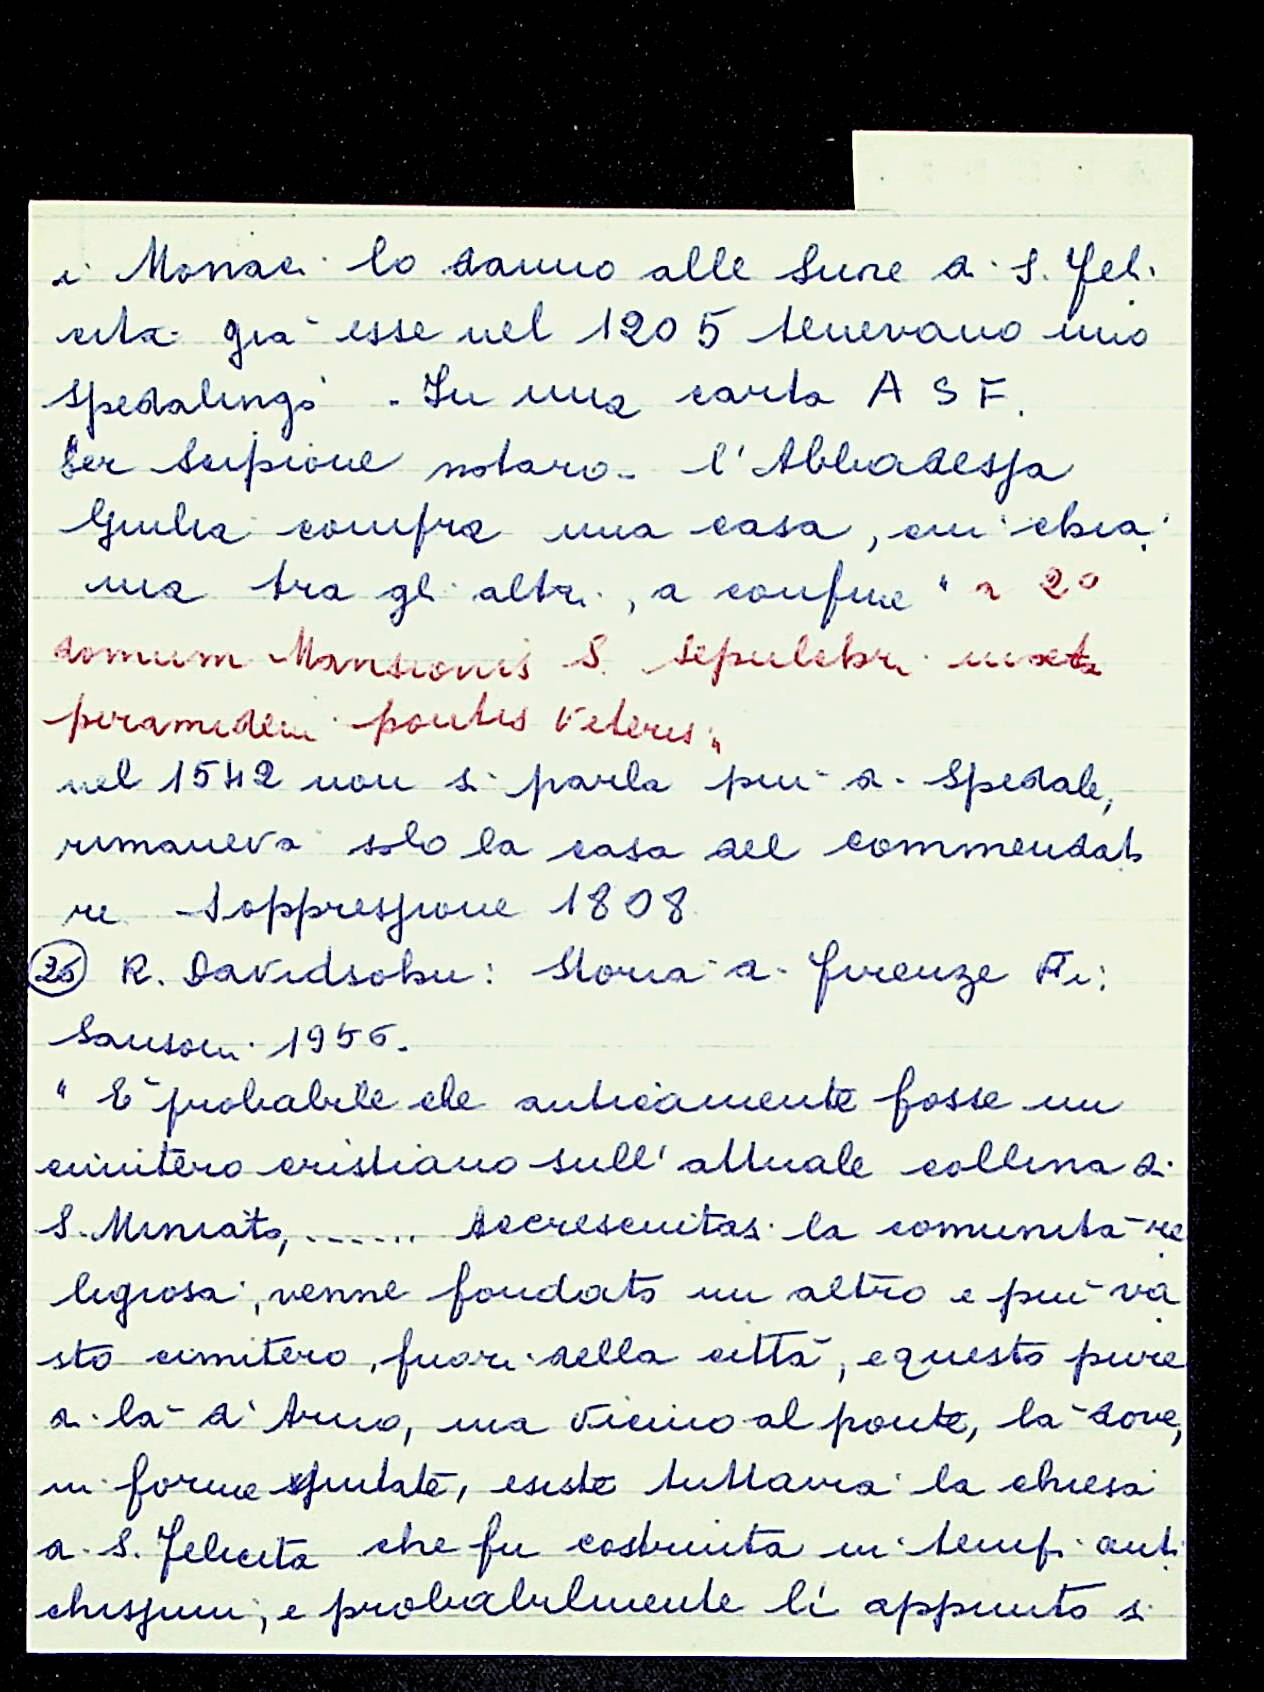 i Monaci lo danno alle Suore di S. Feli
cita già esse nel 1205 tenevano uno
Spedalingo. In una carta A S F.
Ser Scipione notaro - l'Abbadessa
Giulia compra una casa, cui chia
ma tra gli altri, a confine "a 2°
domum Mansionis S. Sepulchri iuxta
piramidem pontis Veteris"
nel 1542 non si parla più di Spedale,
rimaneva solo la casa del commendato
re. Soppressione 1808
(25) R. Davidsohn: Storia di Firenze Fi:
Sansoni 1956.
"È probabile che anticamente fosse un
cimitero cristiano sull'attuale collina di
S. Miniato, ...... Accresciutasi la comunità re
ligiosa, venne fondato un altro e più va
sto cimitero, fuori della città, e questo pure
di là d'Arno, ma vicino al ponte, là dove,
in forme mutate, esiste tuttavia la chiesa
di S. Felicita che fu costruita in tempi anti
chissimi, e probabilmente lì appunto si